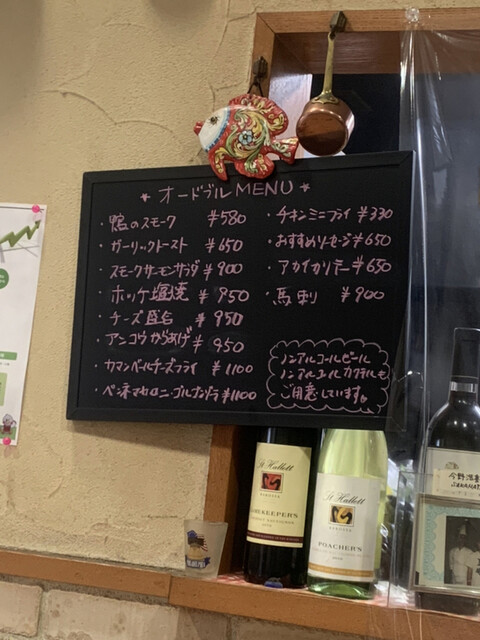 * オードブルMENU *
・鴨のスモーク ¥580
・ガーリックトースト ¥650
・スモークサーモンサラダ ¥900
・ホッケ塩焼 ¥950
・チーズ盛合 ¥950
・アンコウからあげ ¥950
・カマンベールチーズフライ ¥1100
・ペンネマカロニ・ゴルゴンゾラ ¥1100
・チキンミニフライ ¥330
・おすすめソーセージ ¥650
・アカイカソテー ¥650
・馬刺 ¥900
ノンアルコールビール
ノンアルコールカクテルも
ご用意しています。
St Hallett
BAROSSA
GAMEKEEPER'S
St Hallett
BAROSSA
POACHER'S